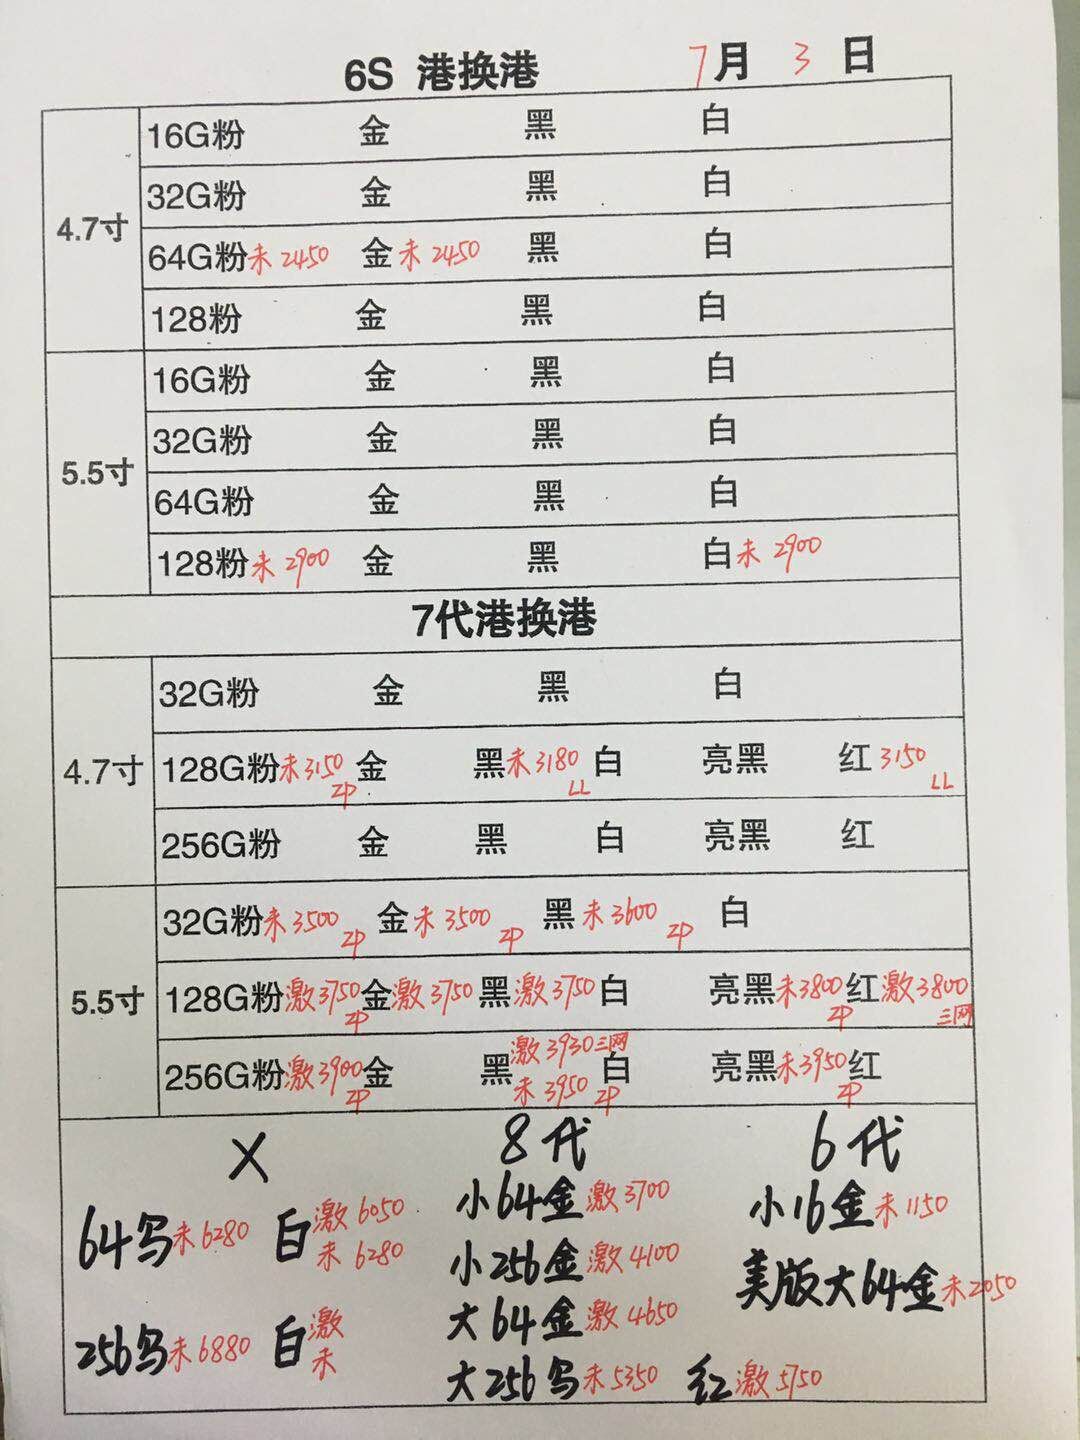 6S 港换港 7月3日
4.7寸
16G粉 金 黑 白
32G粉 金 黑 白
64G粉未2450 金未2450 黑 白
128粉 金 黑 白
5.5寸
16G粉 金 黑 白
32G粉 金 黑 白
64G粉 金 黑 白
128粉未2900 金 黑 白未2900
7代港换港
4.7寸
32G粉 金 黑 白
128G粉未3150 ZP 金 黑未3180 LL 白 亮黑 红3150 LL
256G粉 金 黑 白 亮黑 红
5.5寸
32G粉未3500 ZP 金未3500 ZP 黑未3600 ZP 白
128G粉激3750 ZP 金激3750 黑激3750 白 亮黑未3800 ZP 红激3800三网
256G粉激3900 ZP 金 黑激3930三网 未3950 ZP 白 亮黑未3950 ZP 红
X
64乌未6280 白激6050 未6280
256乌未6880 白激 未
8代
小64金激3700
小256金激4100
大64金激4650
大256乌未5350 红激5750
6代
小16金未1150
美版大64金未2050